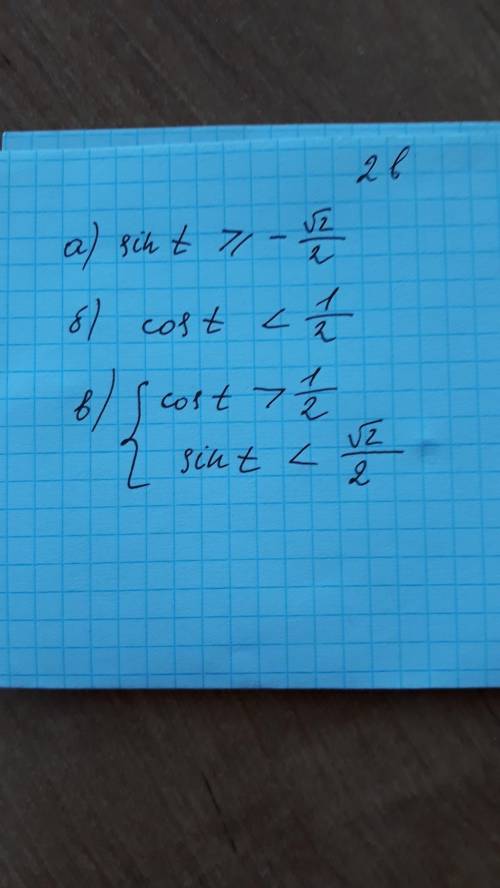 2 в
а) sin t ⩾ - √2/2
б) cos t < 1/2
в) { cos t > 1/2
sin t < √2/2